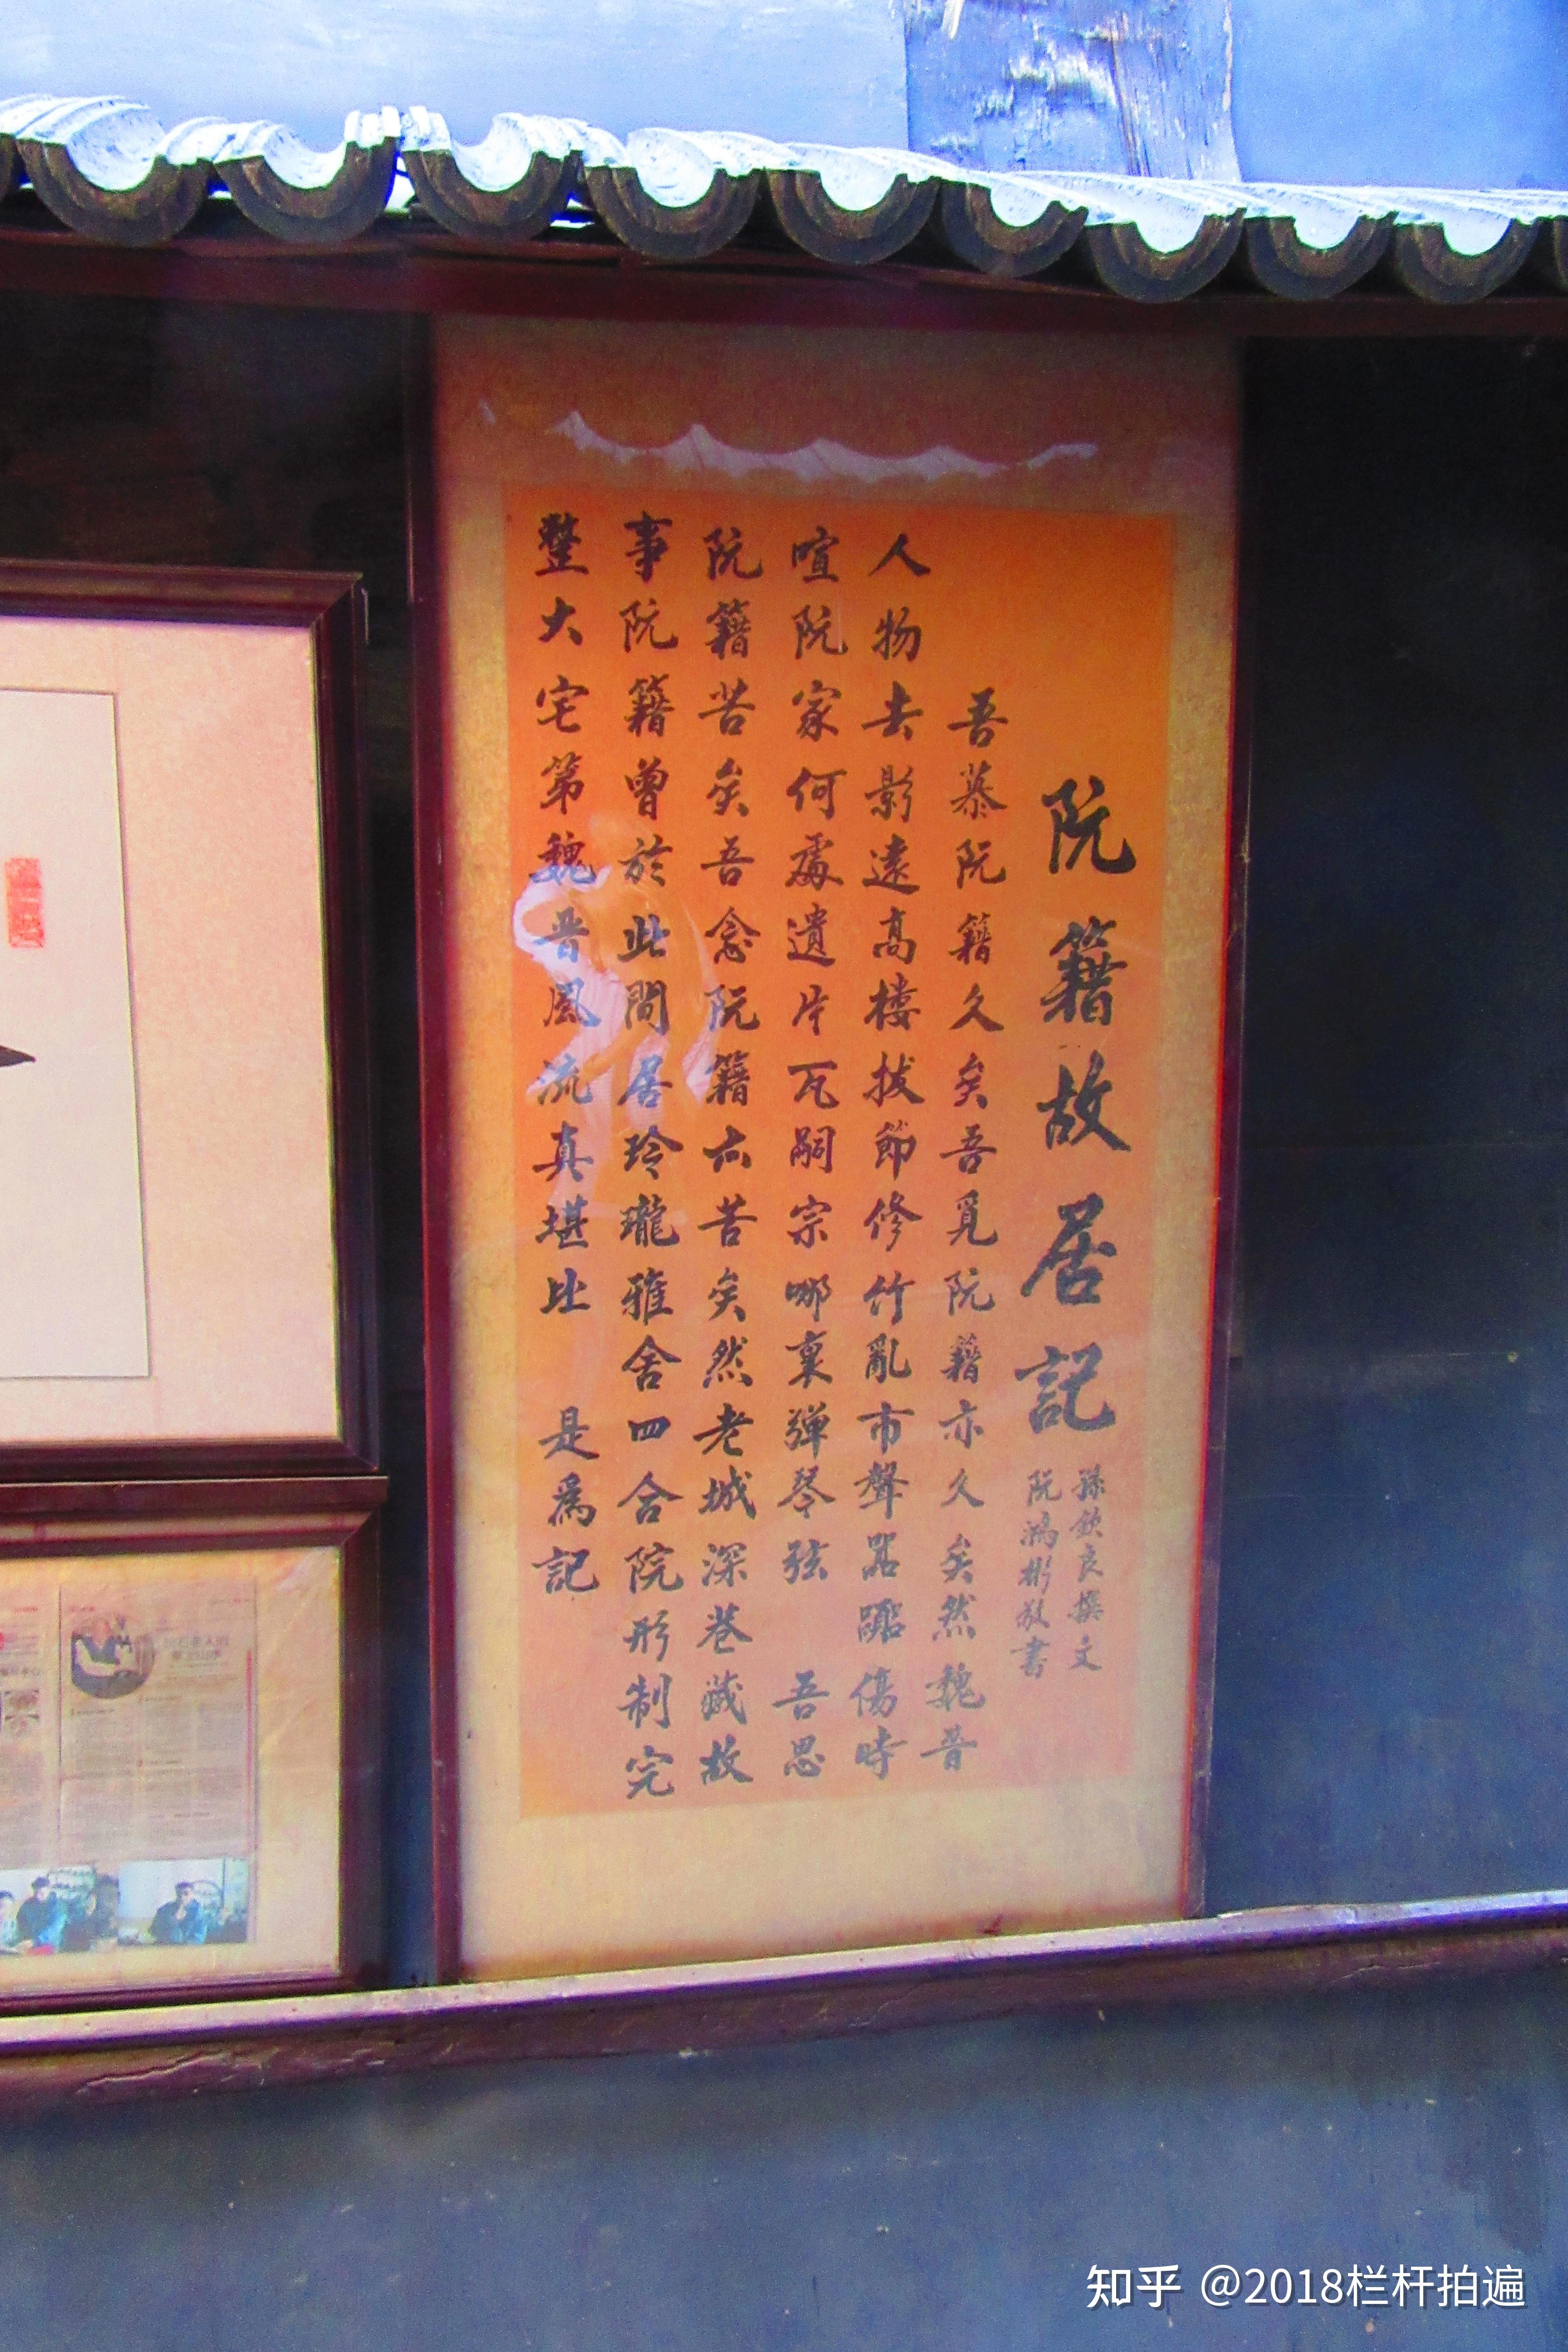 阮籍故居記
孫欽良撰文
阮鴻彬敬書
吾慕阮籍久矣吾覓阮籍亦久矣然魏晉
人物去影遠高樓拔節修竹亂市聲器踞傷時
喧阮家何處遺片瓦嗣宗哪裏彈琴弦 吾思
阮籍苦矣吾念阮籍亦苦矣然老城深巷藏故
事阮籍曾於此間居玲瓏雅舍四合院形制完
整大宅第魏晉風流真堪比 是爲記
知乎 @2018栏杆拍遍